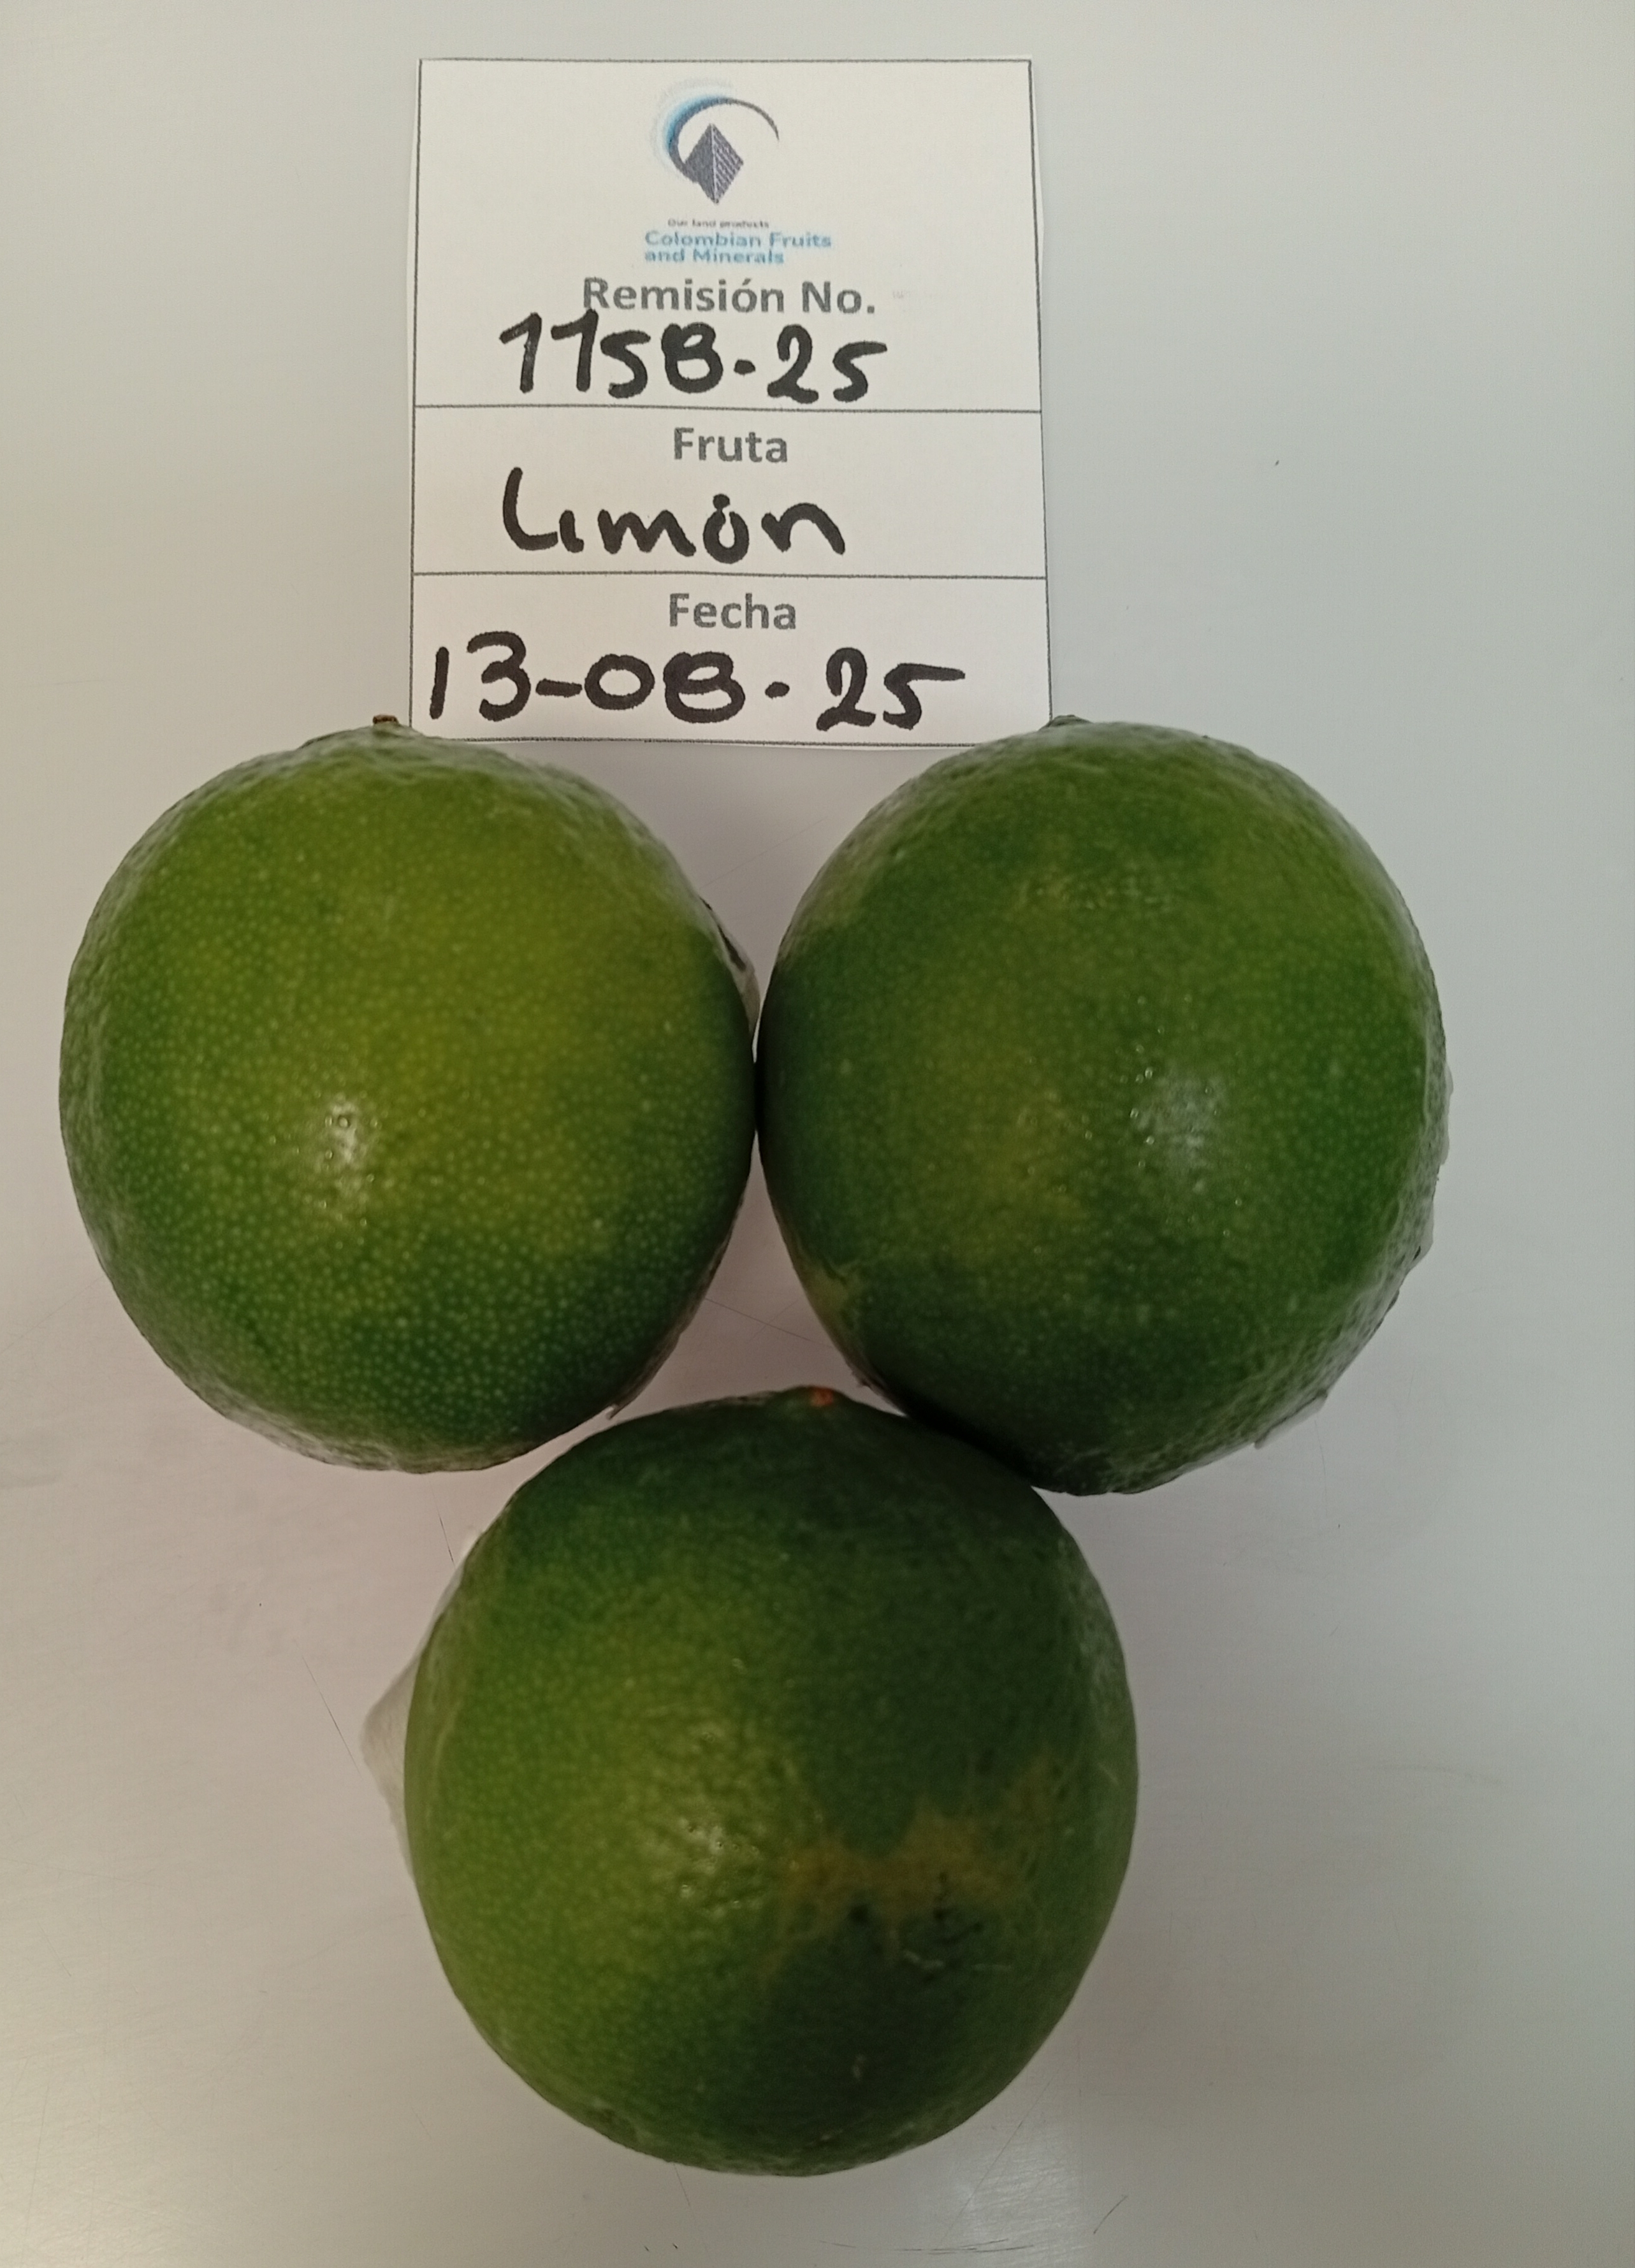 Our land products
Colombian Fruits
and Minerals
Remisión No.
1158-25
Fruta
Limón
Fecha
13-08-25